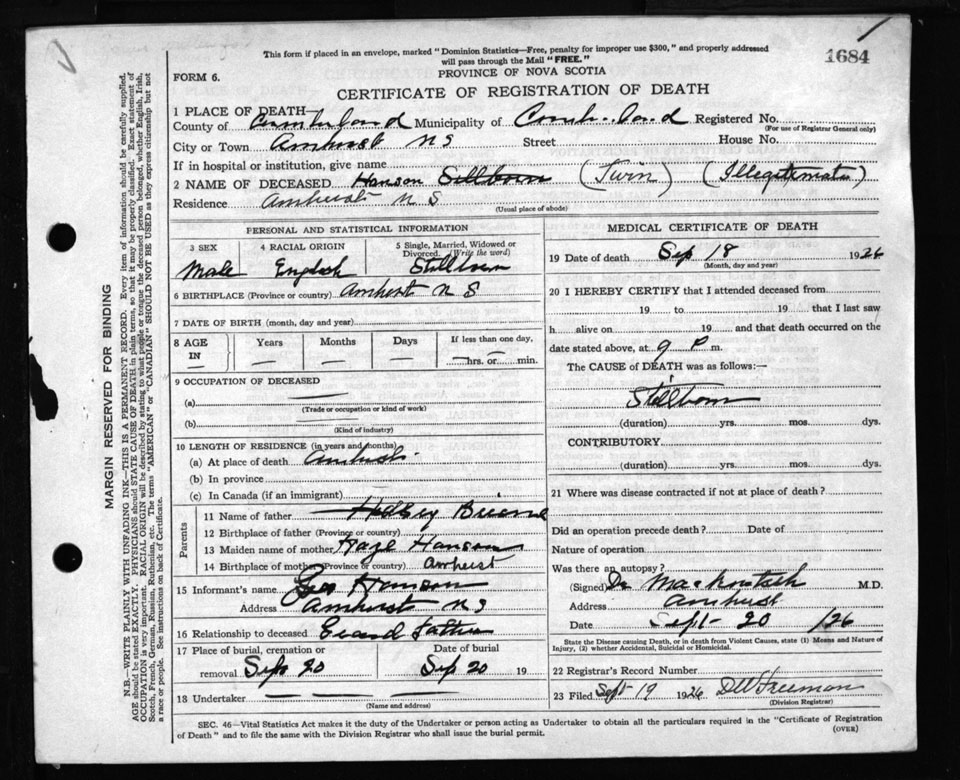 This form if placed in an envelope, marked "Dominion Statistics—Free, penalty for improper use $300," and properly addressed
will pass through the Mail "FREE."
1684
FORM 6.
PROVINCE OF NOVA SCOTIA
CERTIFICATE OF REGISTRATION OF DEATH
MARGIN RESERVED FOR BINDING
N.B.—WRITE PLAINLY WITH UNFADING INK—THIS IS A PERMANENT RECORD. Every item of information should be carefully supplied.
AGE should be stated EXACTLY. PHYSICIANS should STATE CAUSE OF DEATH in plain terms, so that it may be properly classified. Exact statement of
OCCUPATION is very important. RACIAL ORIGIN will be described by stating to what people or tongue the deceased person belonged, whether English, Irish,
Scotch, French, German, Russian, Ruthenian, etc. The terms "AMERICAN" or "CANADIAN" SHOULD NOT BE USED as they express citizenship but not
a race or people. See instructions on back of Certificate.
1 PLACE OF DEATH—
County of Cumberland Municipality of Cumberland Registered No.
(For use of Registrar General only)
City or Town Amherst N S Street House No.
If in hospital or institution, give name
2 NAME OF DECEASED Hanson Stillborn (Twin) (Illegitimate)
Residence Amherst N S
(Usual place of abode)
PERSONAL AND STATISTICAL INFORMATION
3 SEX 4 RACIAL ORIGIN 5 Single, Married, Widowed or
Divorced. (Write the word)
Male English Stillborn
6 BIRTHPLACE (Province or country) Amherst N S
7 DATE OF BIRTH (month, day and year)
8 AGE IN Years Months Days If less than one day,
hrs. or min.
9 OCCUPATION OF DECEASED
(a)
(Trade or occupation or kind of work)
(b)
(Kind of industry)
10 LENGTH OF RESIDENCE (in years and months)
(a) At place of death Amherst
(b) In province
(c) In Canada (if an immigrant)
Parents
11 Name of father
12 Birthplace of father (Province or country)
13 Maiden name of mother Hanson
14 Birthplace of mother (Province or country) Amherst
15 Informant's name Geo Hanson
Address Amherst N S
16 Relationship to deceased Grand father
17 Place of burial, cremation or Date of burial
removal Sep 20 Sep 20 19
18 Undertaker
(Name and address)
MEDICAL CERTIFICATE OF DEATH
19 Date of death Sep 18 1926
(Month, day and year)
20 I HEREBY CERTIFY that I attended deceased from
19 to 19 that I last saw
h alive on 19 and that death occurred on the
date stated above, at 9 P m.
The CAUSE of DEATH was as follows:—
Stillborn
(duration) yrs. mos. dys.
CONTRIBUTORY
(duration) yrs. mos. dys.
21 Where was disease contracted if not at place of death?
Did an operation precede death? Date of
Nature of operation
Was there an autopsy?
(Signed) Dr Mackintosh M.D.
Address Amherst
Date Sept 20 /26
State the Disease causing Death, or in death from Violent Causes, state (1) Means and Nature of
Injury, (2) whether Accidental, Suicidal or Homicidal.
22 Registrar's Record Number
23 Filed Sept 19 1926 Freeman
(Division Registrar)
SEC. 46—Vital Statistics Act makes it the duty of the Undertaker or person acting as Undertaker to obtain all the particulars required in the "Certificate of Registration
of Death" and to file the same with the Division Registrar who shall issue the burial permit.
(OVER)